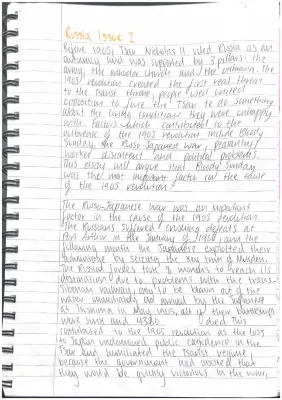 Russia Issue 2
Before 1905, Tsar Nicholas II ruled Russia as an
autocracy and was supported by 3 pillars: the
army, the church and the. The
1905 revolution created the first real threat
to the Tsarist throne, people were united
opposition to force the Tsar to do something
about the living conditions they were unhappy
with. Factors which contributed to the
outbreak of the 1905 revolution include Bloody
Sunday, the Russo-Japanese war, peasantry/
worker discontent and political problems.
This essay will argue that Bloody Sunday
was the most important factor in the cause
of the 1905 revolution.
The Russo-Japanese war was an important
factor in the cause of the 1905 revolution.
The Russians suffered crushing defeats at
Port Arthur in the January of, and the
following month the Japanese exploited their
advantage by seizing the key town of Mukden.
The Russian forces took months to reach its
destination due to problems with the Trans-
Siberian railway, only to be blown out of the
water immediately on arrival by the Japanese
at Tsushima in May 1905, all of their battleships
were sunk and 4380 died. This
contributed to the 1905 revolution as the loss
to Japan undermined public confidence in the
Tsar and humiliated the Tsarist regime,
because the government had insisted that
they would be quickly victorious in the war,